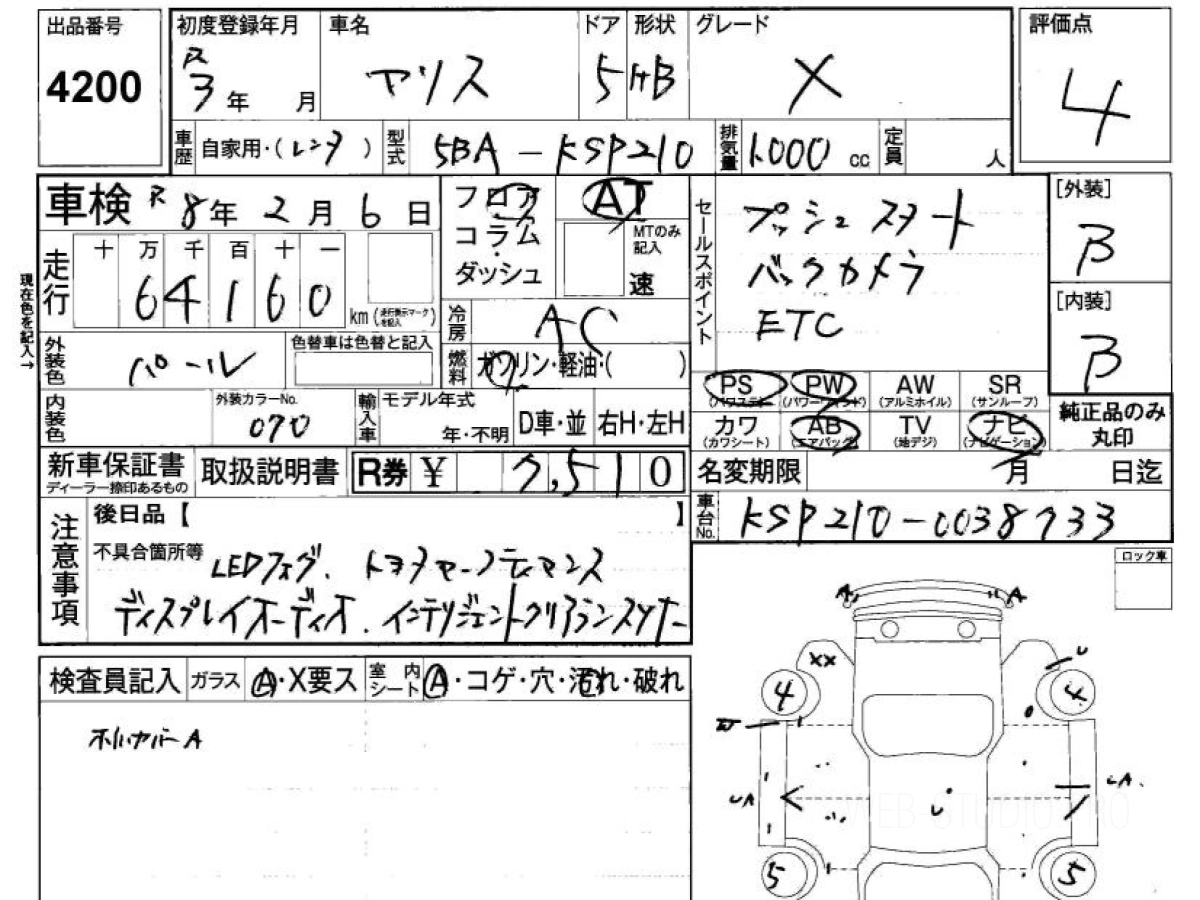 出品番号
4200
初度登録年月 R3年 月
車名 ヤリス
ドア 5
形状 HB
グレード X
評価点 4
車歴 自家用・(レンタ)
型式 5BA-KSP210
排気量 1.000 cc
定員 人
車検 R8年2月6日
フロア
コラム
ダッシュ
AT
MTのみ記入
速
セールスポイント
プッシュスタート
バックカメラ
ETC
[外装]
B
[内装]
B
現在色を記入→
走行 十万千百十一
64160 km (走行表示マークを記入)
冷房 AC
燃料 ガソリン・軽油・( )
外装色 パール
色替車は色替と記入
内装色
外装カラーNo. 070
輸入車 モデル年式 年・不明
D車・並
右H・左H
PS (パワステ)
PW (パワーウインド)
AW (アルミホイル)
SR (サンルーフ)
カワ (カワシート)
AB (エアバッグ)
TV (地デジ)
ナビ (ナビゲーション)
純正品のみ丸印
新車保証書
ディーラー捺印あるもの
取扱説明書
R券 ¥ 7,510
名変期限 月 日迄
車台No. KSP210-0038733
注意事項
後日品【 】
不具合箇所等
LEDフォグ. トヨタチームメイト
ディスプレイオーディオ. インテリジェントクリアランスソナー
ロック車
検査員記入
ガラス A・X要ス
室内シート A・コゲ・穴・汚れ・破れ
ホイルカバーA
A
A
XX
U
4
4
UA
UA.
U
WEB STUDIO PRO
5
5